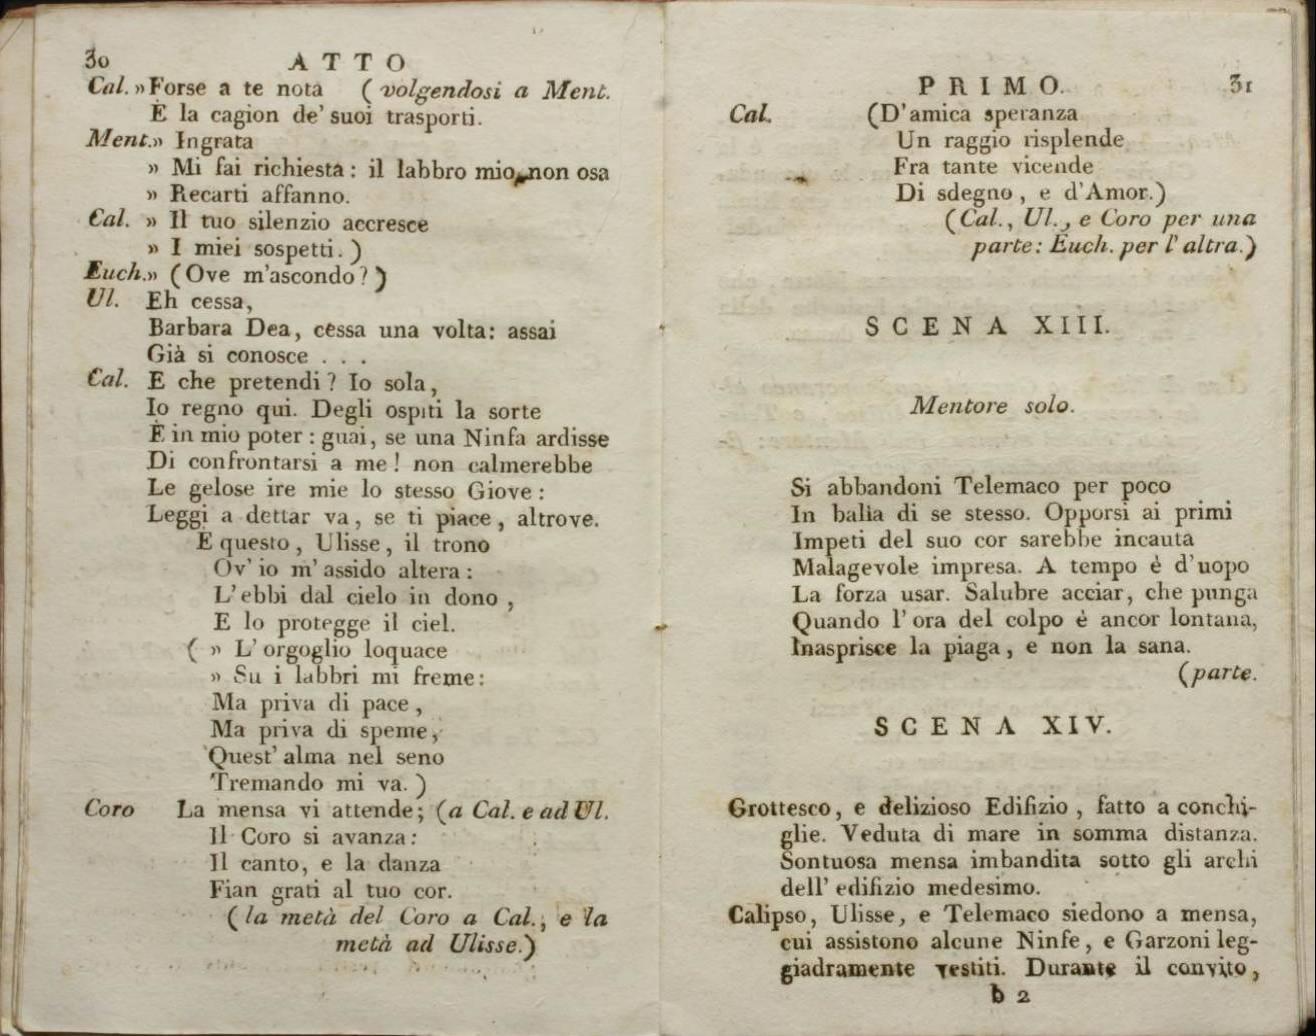 30 ATTO
Cal. » Forse a te nota ( volgendosi a Ment.
È la cagion de' suoi trasporti.
Ment. » Ingrata
» Mi fai richiesta : il labbro mio non osa
» Recarti affanno.
Cal. » Il tuo silenzio accresce
» I miei sospetti. )
Euch. » (Ove m'ascondo ? )
Ul. Eh cessa,
Barbara Dea, cessa una volta: assai
Già si conosce . . .
Cal. E che pretendi ? Io sola,
Io regno qui. Degli ospiti la sorte
È in mio poter : guai, se una Ninfa ardisse
Di confrontarsi a me ! non calmerebbe
Le gelose ire mie lo stesso Giove :
Leggi a dettar va, se ti piace, altrove.
E questo, Ulisse, il trono
Ov' io m' assido altera :
L' ebbi dal cielo in dono ,
E lo protegge il ciel.
( » L' orgoglio loquace
» Su i labbri mi freme :
Ma priva di pace ,
Ma priva di speme,
Quest' alma nel seno
Tremando mi va. )
Coro La mensa vi attende; (a Cal. e ad Ul.
Il Coro si avanza :
Il canto, e la danza
Fian grati al tuo cor.
( la metà del Coro a Cal., e la
metà ad Ulisse.)
PRIMO. 31
Cal. (D'amica speranza
Un raggio risplende
Fra tante vicende
Di sdegno , e d'Amor.)
(Cal., Ul., e Coro per una
parte: Euch. per l'altra.)
SCENA XIII.
Mentore solo.
Si abbandoni Telemaco per poco
In balìa di se stesso. Opporsi ai primi
Impeti del suo cor sarebbe incauta
Malagevole impresa. A tempo è d'uopo
La forza usar. Salubre acciar, che punga
Quando l' ora del colpo è ancor lontana,
Inasprisce la piaga , e non la sana.
(parte.
SCENA XIV.
Grottesco, e delizioso Edifizio , fatto a conchi-
glie. Veduta di mare in somma distanza.
Sontuosa mensa imbandita sotto gli archi
dell' edifizio medesimo.
Calipso, Ulisse, e Telemaco siedono a mensa,
cui assistono alcune Ninfe, e Garzoni leg-
giadramente vestiti. Durante il convito,
b 2